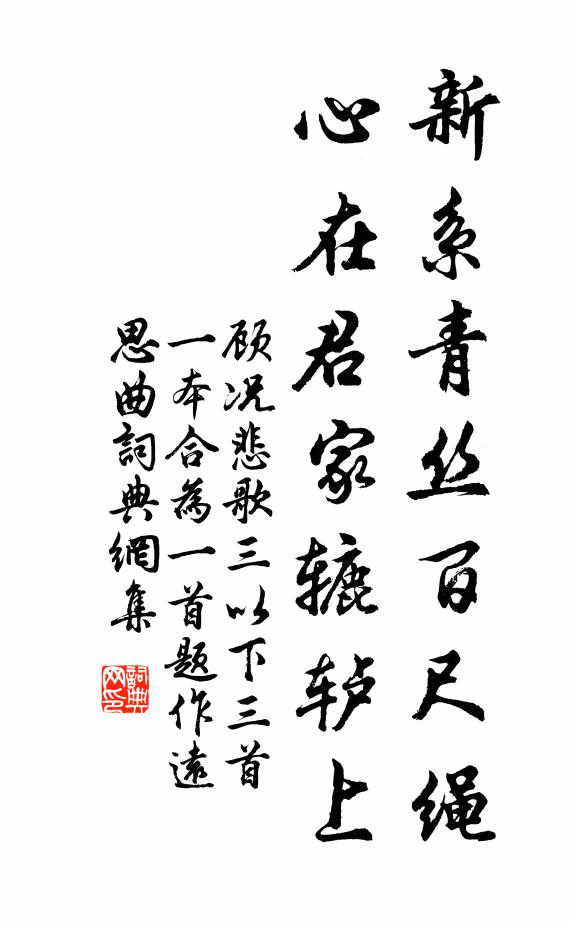 新系青丝百尺绳
心在君家辘轳上
顾况悲歌三以下三首
一本合為一首题作遠
思曲詞典網集
詞典
网印